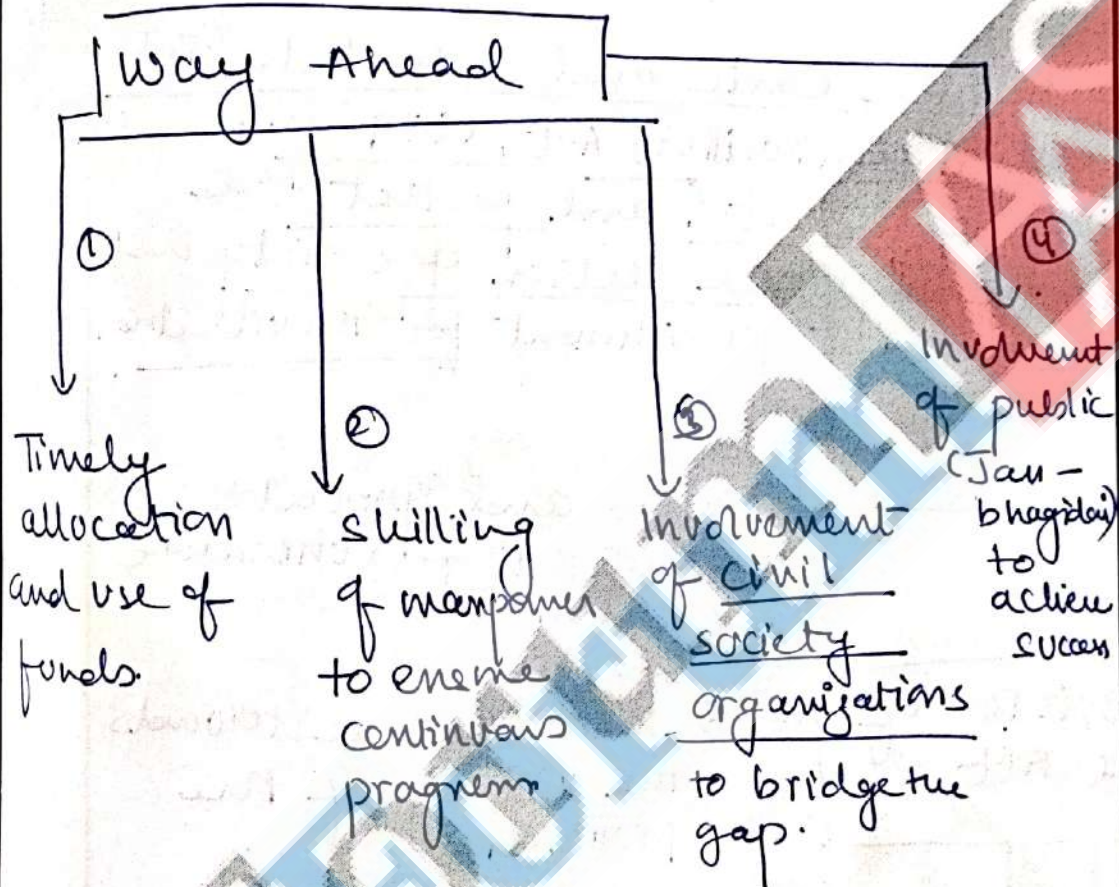 Way Ahead
①
Timely
allocation
and use of
funds.
②
skilling
of manpower
to ensure
continuous
progress
③
Involvement
of civil
society
organizations
to bridge the
gap.
④
Involvment
of public
(Jan-
bhagidari)
to
achieve
success